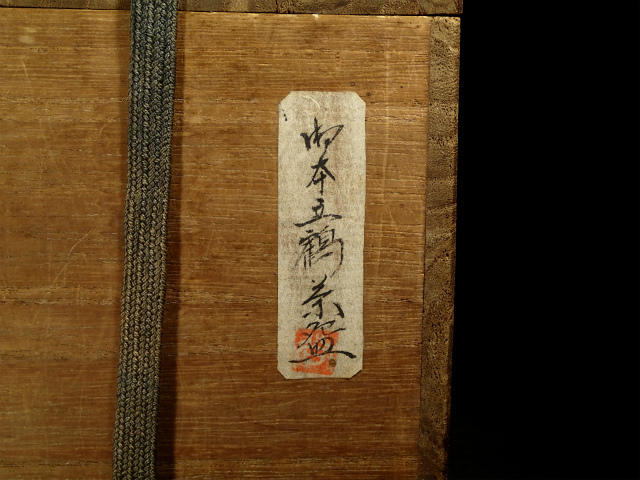 御本立鶴茶盌